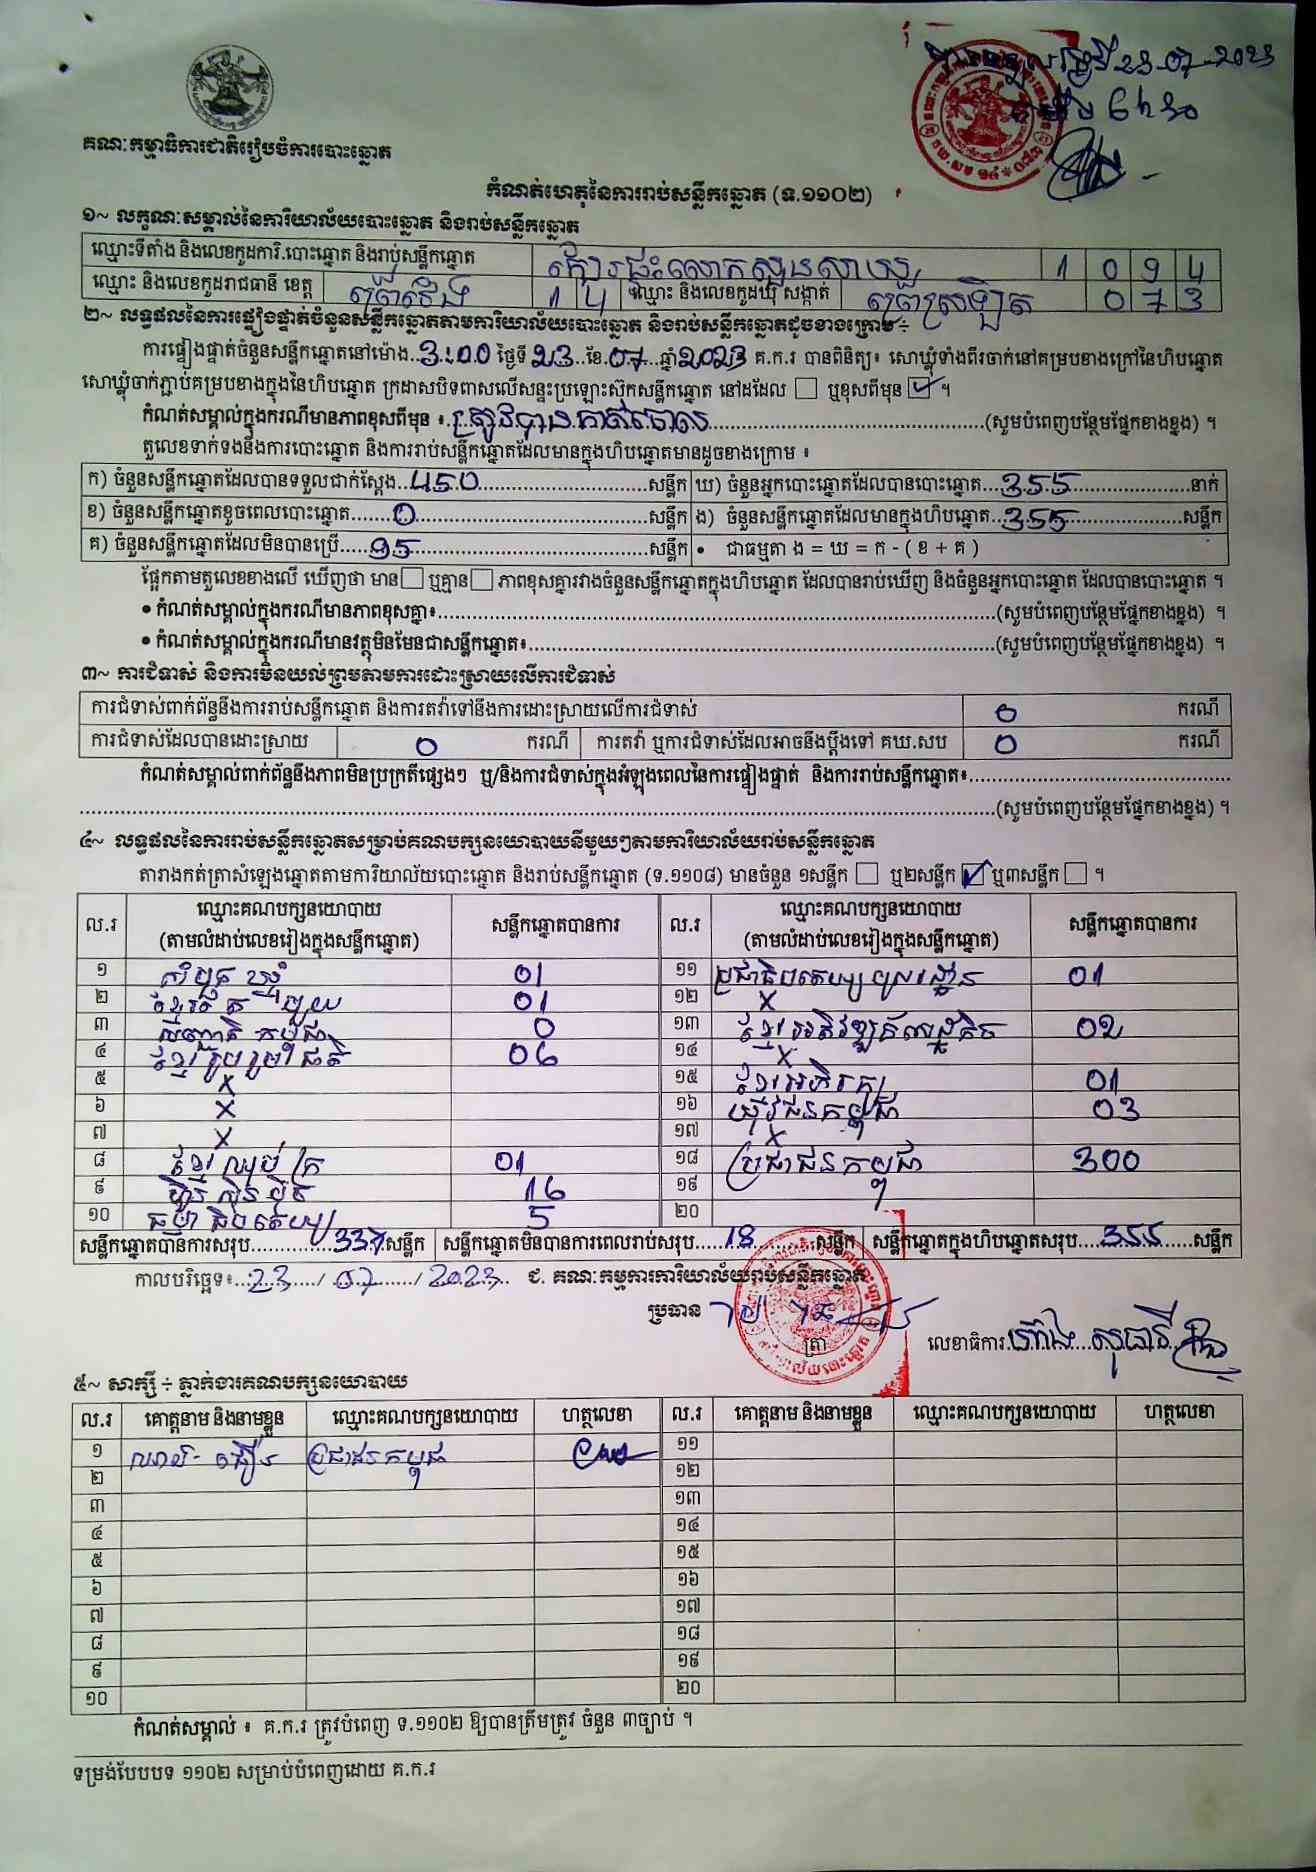 គណៈកម្មាធិការជាតិរៀបចំការបោះឆ្នោត
23-07-2023
កំណត់ហេតុនៃការរាប់សន្លឹកឆ្នោត (ទ.១១០២)
១~ លក្ខណៈសម្គាល់នៃការិយាល័យបោះឆ្នោត និងរាប់សន្លឹកឆ្នោត
ឈ្មោះទីតាំង និងលេខកូដការិ.បោះឆ្នោត និងរាប់សន្លឹកឆ្នោត 1 0 9 4
ឈ្មោះ និងលេខកូដរាជធានី ខេត្ត ព្រៃវែង 1 4 ឈ្មោះ និងលេខកូដឃុំ សង្កាត់ 0 7 3
២~ លទ្ធផលនៃការផ្ទៀងផ្ទាត់ចំនួនសន្លឹកឆ្នោតតាមការិយាល័យបោះឆ្នោត និងរាប់សន្លឹកឆ្នោតដូចខាងក្រោម ÷
ការផ្ទៀងផ្ទាត់ចំនួនសន្លឹកឆ្នោតនៅម៉ោង..3:00 ថ្ងៃទី 23..ខែ.07..ឆ្នាំ 2023 គ.ក.រ បានពិនិត្យ៖ សោឃ្លុំទាំងពីរចាក់នៅគម្របខាងក្រៅនៃហិបឆ្នោត
សោឃ្លុំចាក់ភ្ជាប់គម្របខាងក្នុងនៃហិបឆ្នោត ក្រដាសបិទពាសលើសន្ទះប្រឡោះស៊ុកសន្លឹកឆ្នោត នៅដដែល ☐ ឬខុសពីមុន ☑ ។
កំណត់សម្គាល់ក្នុងករណីមានភាពខុសពីមុន ៖ ត្រូវបានកាត់ចោល (សូមបំពេញបន្ថែមផ្នែកខាងខ្នង) ។
តួលេខទាក់ទងនឹងការបោះឆ្នោត និងការរាប់សន្លឹកឆ្នោតដែលមានក្នុងហិបឆ្នោតមានដូចខាងក្រោម ៖
ក) ចំនួនសន្លឹកឆ្នោតដែលបានទទួលជាក់ស្តែង..450 សន្លឹក ឃ) ចំនួនអ្នកបោះឆ្នោតដែលបានបោះឆ្នោត...355 នាក់
ខ) ចំនួនសន្លឹកឆ្នោតខូចពេលបោះឆ្នោត.......0 សន្លឹក ង) ចំនួនសន្លឹកឆ្នោតដែលមានក្នុងហិបឆ្នោត...355 សន្លឹក
គ) ចំនួនសន្លឹកឆ្នោតដែលមិនបានប្រើ.....95 សន្លឹក • ជាធម្មតា ង = ឃ = ក - ( ខ + គ )
ផ្អែកតាមតួលេខខាងលើ ឃើញថា មាន☐ ឬគ្មាន☐ ភាពខុសគ្នារវាងចំនួនសន្លឹកឆ្នោតក្នុងហិបឆ្នោត ដែលបានរាប់ឃើញ និងចំនួនអ្នកបោះឆ្នោត ដែលបានបោះឆ្នោត ។
• កំណត់សម្គាល់ក្នុងករណីមានភាពខុសគ្នា៖ (សូមបំពេញបន្ថែមផ្នែកខាងខ្នង) ។
• កំណត់សម្គាល់ក្នុងករណីមានវត្ថុមិនមែនជាសន្លឹកឆ្នោត៖ (សូមបំពេញបន្ថែមផ្នែកខាងខ្នង) ។
៣~ ការជំទាស់ និងការមិនយល់ព្រមតាមការដោះស្រាយលើការជំទាស់
ការជំទាស់ពាក់ព័ន្ធនឹងការរាប់សន្លឹកឆ្នោត និងការតវ៉ាទៅនឹងការដោះស្រាយលើការជំទាស់ 0 ករណី
ការជំទាស់ដែលបានដោះស្រាយ 0 ករណី ការតវ៉ា ឬការជំទាស់ដែលអាចនឹងប្តឹងទៅ គឃ.សប 0 ករណី
កំណត់សម្គាល់ពាក់ព័ន្ធនឹងភាពមិនប្រក្រតីផ្សេងៗ ឬ/និងការជំទាស់ក្នុងអំឡុងពេលនៃការផ្ទៀងផ្ទាត់ និងការរាប់សន្លឹកឆ្នោត៖
(សូមបំពេញបន្ថែមផ្នែកខាងខ្នង) ។
៤~ លទ្ធផលនៃការរាប់សន្លឹកឆ្នោតសម្រាប់គណបក្សនយោបាយនីមួយៗតាមការិយាល័យរាប់សន្លឹកឆ្នោត
តារាងកត់ត្រាសំឡេងឆ្នោតតាមការិយាល័យបោះឆ្នោត និងរាប់សន្លឹកឆ្នោត (ទ.១១០៨) មានចំនួន ១សន្លឹក ☐ ឬ២សន្លឹក ☑ ឬ៣សន្លឹក ☐ ។
ល.រ ឈ្មោះគណបក្សនយោបាយ (តាមលំដាប់លេខរៀងក្នុងសន្លឹកឆ្នោត) សន្លឹកឆ្នោតបានការ ល.រ ឈ្មោះគណបក្សនយោបាយ (តាមលំដាប់លេខរៀងក្នុងសន្លឹកឆ្នោត) សន្លឹកឆ្នោតបានការ
១ សំបុកឃ្មុំ 01 ១១ ប្រជាធិបតេយ្យមូលដ្ឋាន 01
២ 01 ១២ X
៣ 0 ១៣ ខ្មែរអភិវឌ្ឍន៍សេដ្ឋកិច្ច 02
៤ ខ្មែររួបរួមជាតិ 06 ១៤ X
៥ X ១៥ ខ្មែរអភិរក្ស 01
៦ X ១៦ យុវជនកម្ពុជា 03
៧ X ១៧ X
៨ ខ្មែរឈប់ក្រ 01 ១៨ ប្រជាជនកម្ពុជា 300
៩ ហ្វ៊ុនស៊ិនប៉ិច 16 ១៩
១០ ធម្មាធិបតេយ្យ 5 ២០
សន្លឹកឆ្នោតបានការសរុប 337 សន្លឹក សន្លឹកឆ្នោតមិនបានការពេលរាប់សរុប 18 សន្លឹក សន្លឹកឆ្នោតក្នុងហិបឆ្នោតសរុប 355 សន្លឹក
កាលបរិច្ឆេទ៖ 23 / 07 / 2023 ជ. គណៈកម្មការការិយាល័យរាប់សន្លឹកឆ្នោត
ប្រធាន
ត្រា លេខាធិការ
៥~ សាក្សី ÷ ភ្នាក់ងារគណបក្សនយោបាយ
ល.រ គោត្តនាម និងនាមខ្លួន ឈ្មោះគណបក្សនយោបាយ ហត្ថលេខា ល.រ គោត្តនាម និងនាមខ្លួន ឈ្មោះគណបក្សនយោបាយ ហត្ថលេខា
១ ប្រជាជនកម្ពុជា ១១
២ ១២
៣ ១៣
៤ ១៤
៥ ១៥
៦ ១៦
៧ ១៧
៨ ១៨
៩ ១៩
១០ ២០
កំណត់សម្គាល់ ៖ គ.ក.រ ត្រូវបំពេញ ទ.១១០២ ឱ្យបានត្រឹមត្រូវ ចំនួន ៣ច្បាប់ ។
ទម្រង់បែបបទ ១១០២ សម្រាប់បំពេញដោយ គ.ក.រ